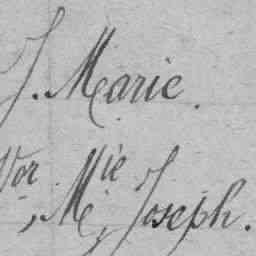 J. Marie.
Vor Mie
, M, Joseph.